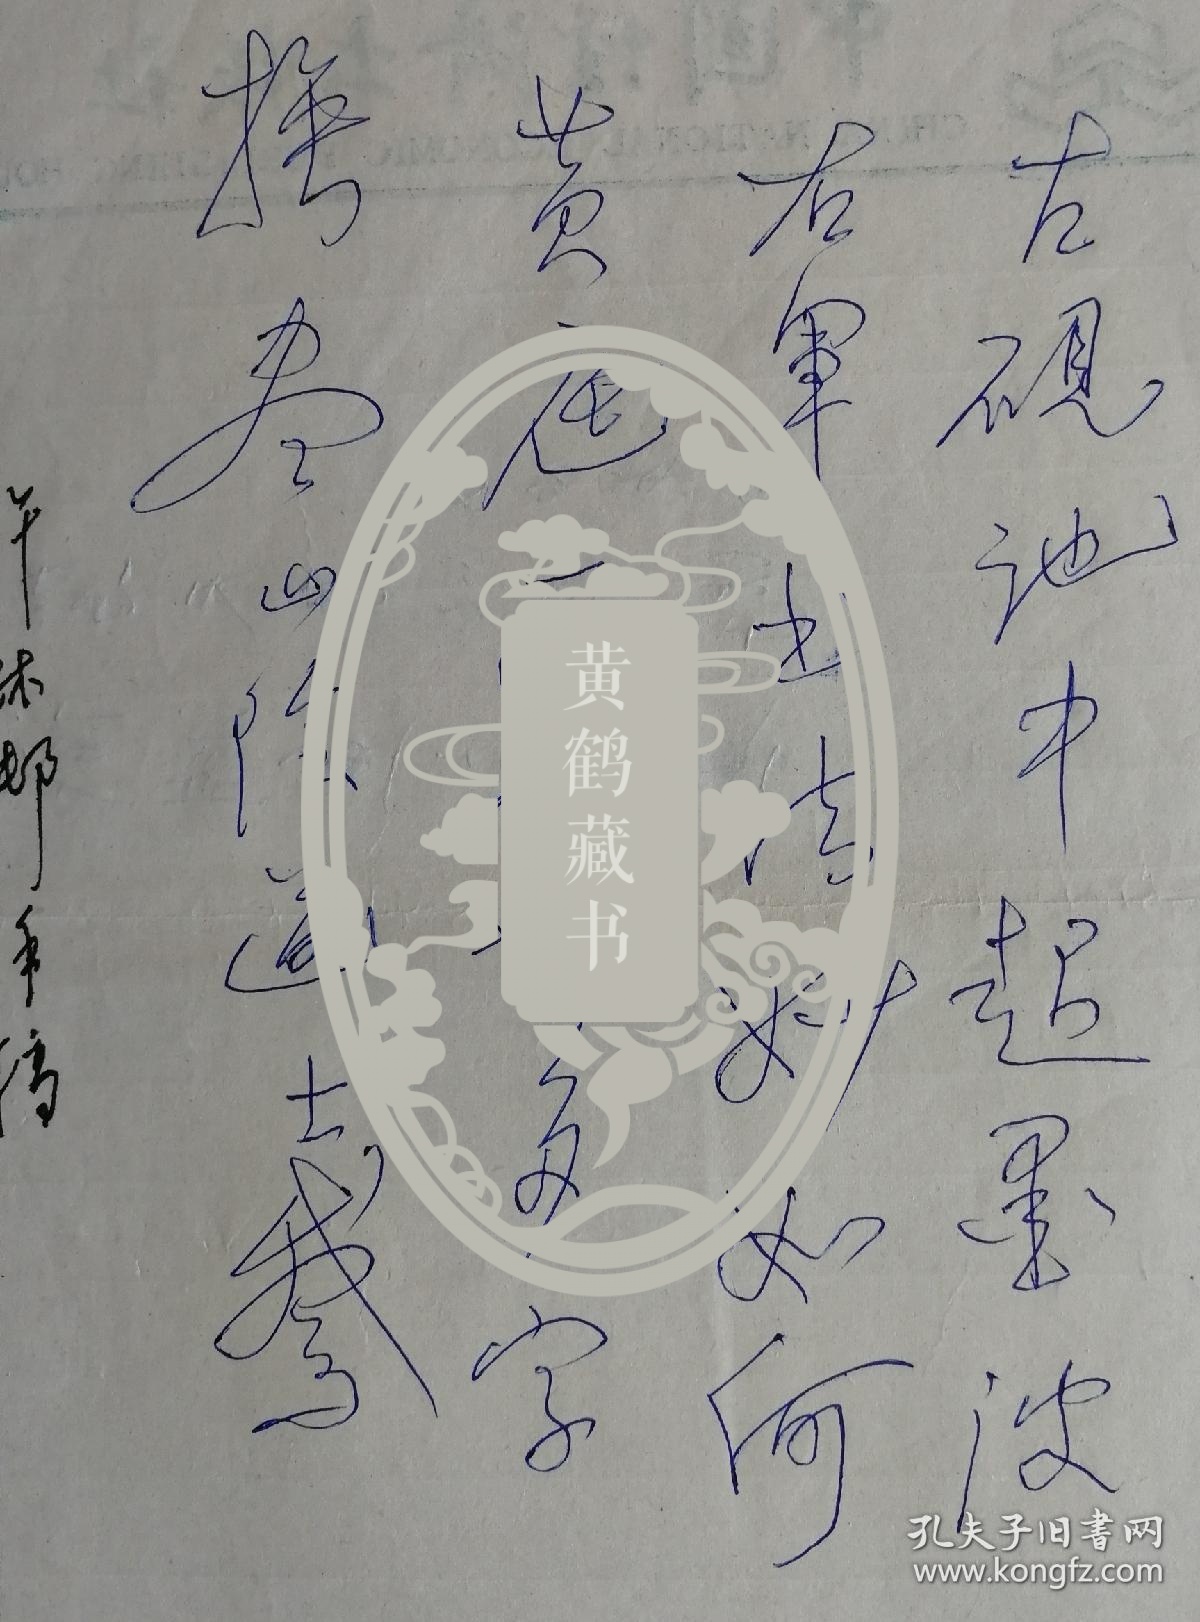 古砚池中起墨波
右军书法妙如何
黄庭一 多字
换尽山阴道士鹅
午休部
黄鹤藏书
孔夫子旧书网
www.kongfz.com